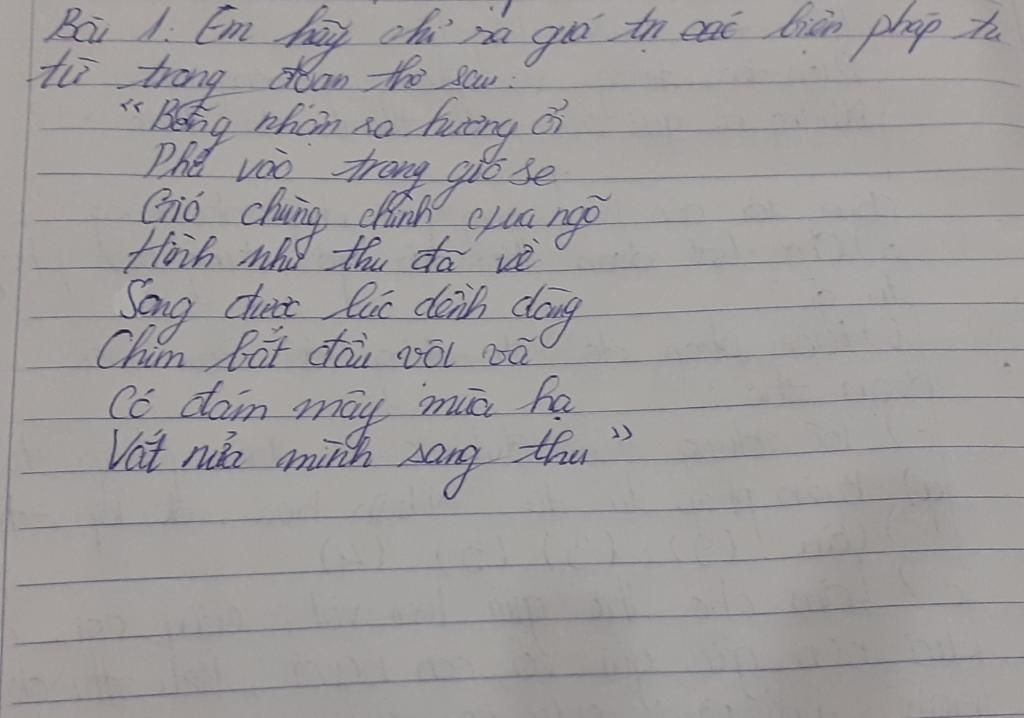 Bài 1. Em hãy chỉ ra giá trị các biện pháp tu
từ trong đoạn thơ sau:
"Bỗng nhận ra hương ổi
Phả vào trong gió se
Gió chùng chình qua ngõ
Hình như thu đã về
Sông được lúc dềnh dàng
Chim bắt đầu vội vã
Có đám mây mùa hạ
Vắt nửa mình sang thu"